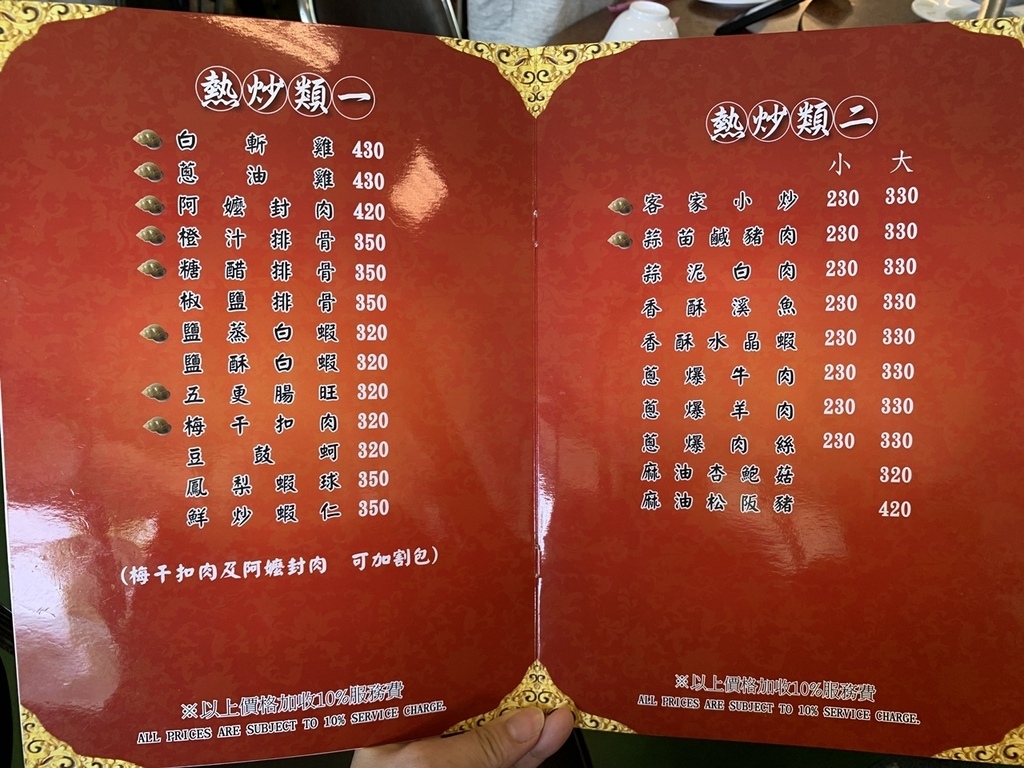 熱炒類一
白斬雞 430
蔥油雞 430
阿嬤封肉 420
橙汁排骨 350
糖醋排骨 350
椒鹽排骨 350
鹽蒸白蝦 320
鹽酥白蝦 320
五更腸旺 320
梅干扣肉 320
豆鼓蚵 320
鳳梨蝦球 350
鮮炒蝦仁 350
(梅干扣肉及阿嬤封肉 可加割包)
※以上價格加收10%服務費
ALL PRICES ARE SUBJECT TO 10% SERVICE CHARGE.
熱炒類二
小 大
客家小炒 230 330
蒜苗鹹豬肉 230 330
蒜泥白肉 230 330
香酥溪魚 230 330
香酥水晶蝦 230 330
蔥爆牛肉 230 330
蔥爆羊肉 230 330
蔥爆肉絲 230 330
麻油杏鮑菇 320
麻油松阪豬 420
※以上價格加收10%服務費
ALL PRICES ARE SUBJECT TO 10% SERVICE CHARGE.